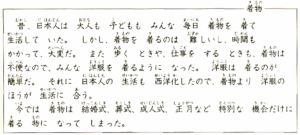 着物
昔、日本人は 大人も 子どもも みんな 毎日 着物を 着て
生活して いた。しかし、着物を 着るのは 難しいし、時間も
かかって、大変だ。また 歩く ときや、仕事を する ときも、着物は
不便なので、みんな 洋服を 着るように なった。洋服は 着るのが
簡単だ。それに 日本人の 生活も 西洋化したので、着物より 洋服の
ほうが 生活に 合う。
今では 着物は 結婚式、葬式、成人式、正月など 特別な 機会だけに
着る 物に なって しまった。